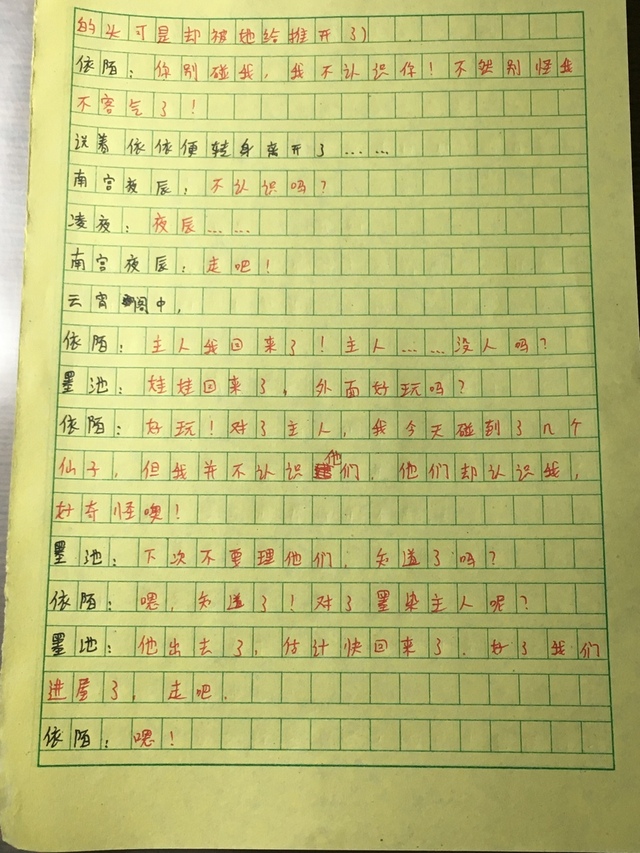 的头可是却被她给推开了)
依陌：你别碰我，我不认识你！不然别怪我
不客气了！
说着依依便转身离开了……
南宫夜辰：不认识吗？
凌夜：夜辰……
南宫夜辰：走吧！
云宵阁中，
依陌：主人我回来了！主人……没人吗？
墨池：娃娃回来了，外面好玩吗？
依陌：好玩！对了主人，我今天碰到了几个
仙子，但我并不认识他们，他们却认识我，
好奇怪噢！
墨池：下次不要理他们，知道了吗？
依陌：嗯，知道了！对了墨染主人呢？
墨池：他出去了，估计快回来了．好了我们
进屋了，走吧．
依陌：嗯！